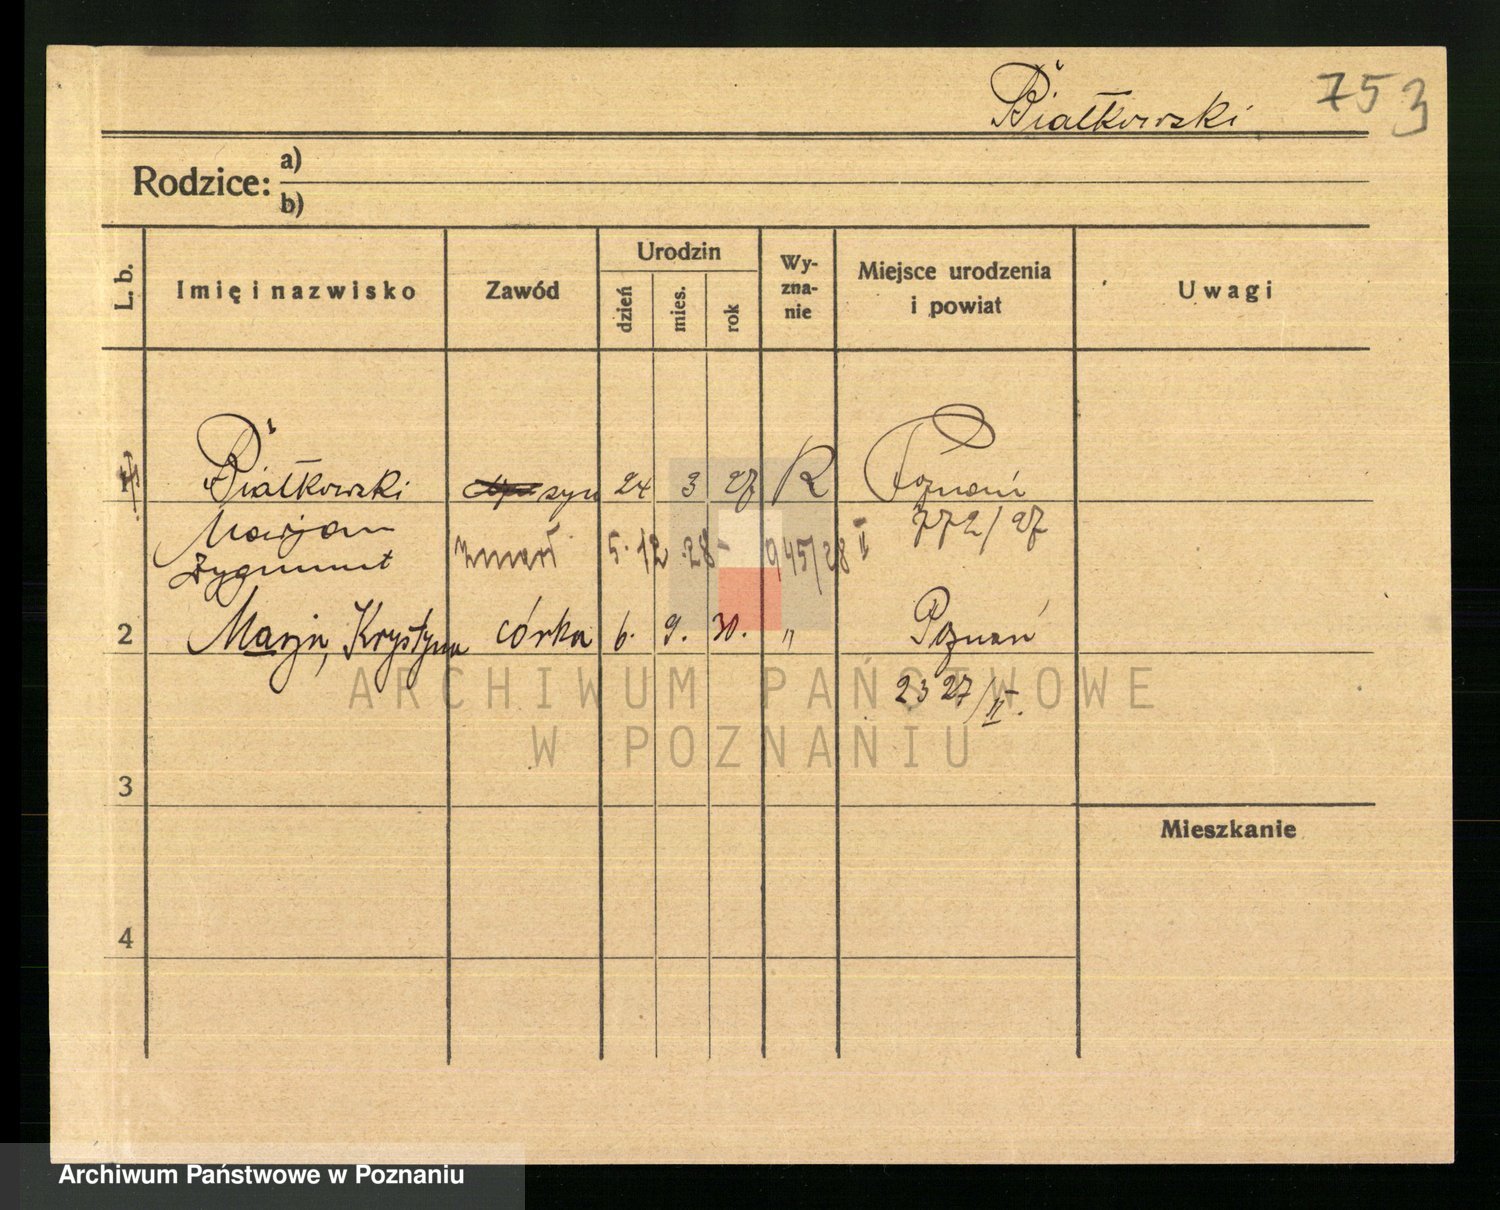 Białkowski 753
Rodzice: a)
b)
L. b. Imię i nazwisko Zawód Urodzin dzień mies. rok Wy-zna-nie Miejsce urodzenia i powiat Uwagi
1 Białkowski syn 24 3 27 R Poznań
Marjan 772/27
Zygmunt zmarł 5. 12 .28 - 945/28 II
2 Marja, Krystyna córka 6. 9. 30. " Poznań
2327/II.
3
Mieszkanie
4
ARCHIWUM PAŃSTWOWE
W POZNANIU
Archiwum Państwowe w Poznaniu